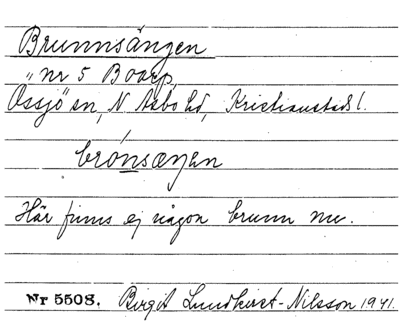 Brunnsängen
" nr 5 Boarp,
Össjö sn, N Åsbo hd, Kristianstads l.
brónsæŋen
Här finns ej någon brunn nu.
Nr 5508. Birgit Lundkvist-Nilsson 1941.